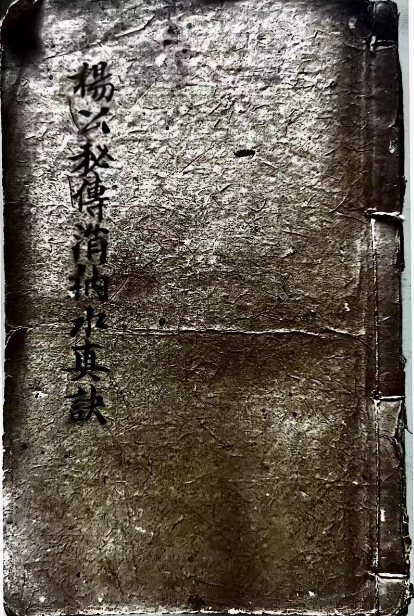 楊公秘傳消納水真訣